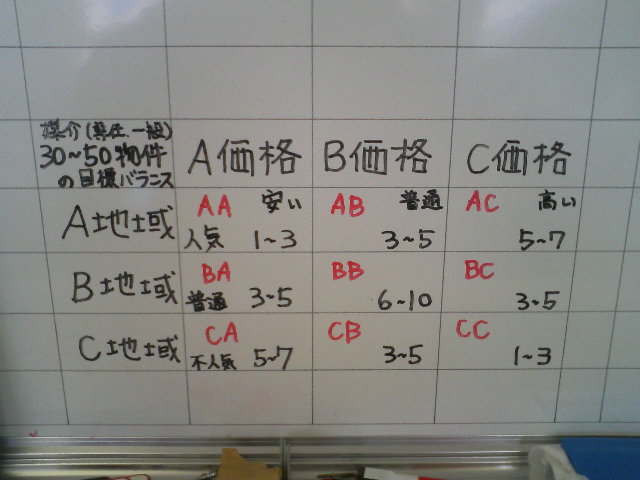 媒介(専任.一般)
30~50物件
の目標バランス
A価格 B価格 C価格
A地域 AA 安い AB 普通 AC 高い
人気 1~3 3~5 5~7
B地域 BA BB BC
普通 3~5 6~10 3~5
C地域 CA CB CC
不人気 5~7 3~5 1~3